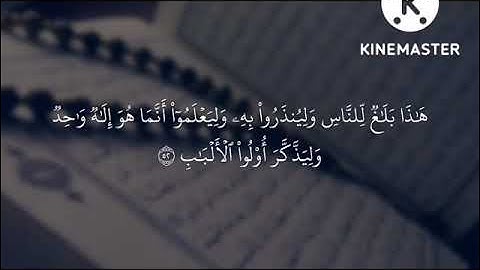 K
KINEMASTER
هَٰذَا بَلَٰغٞ لِّلنَّاسِ وَلِيُنذَرُواْ بِهِۦ وَلِيَعۡلَمُوٓاْ أَنَّمَا هُوَ إِلَٰهٞ وَٰحِدٞ
وَلِيَذَّكَّرَ أُوْلُواْ ٱلۡأَلۡبَٰبِ ٥٢